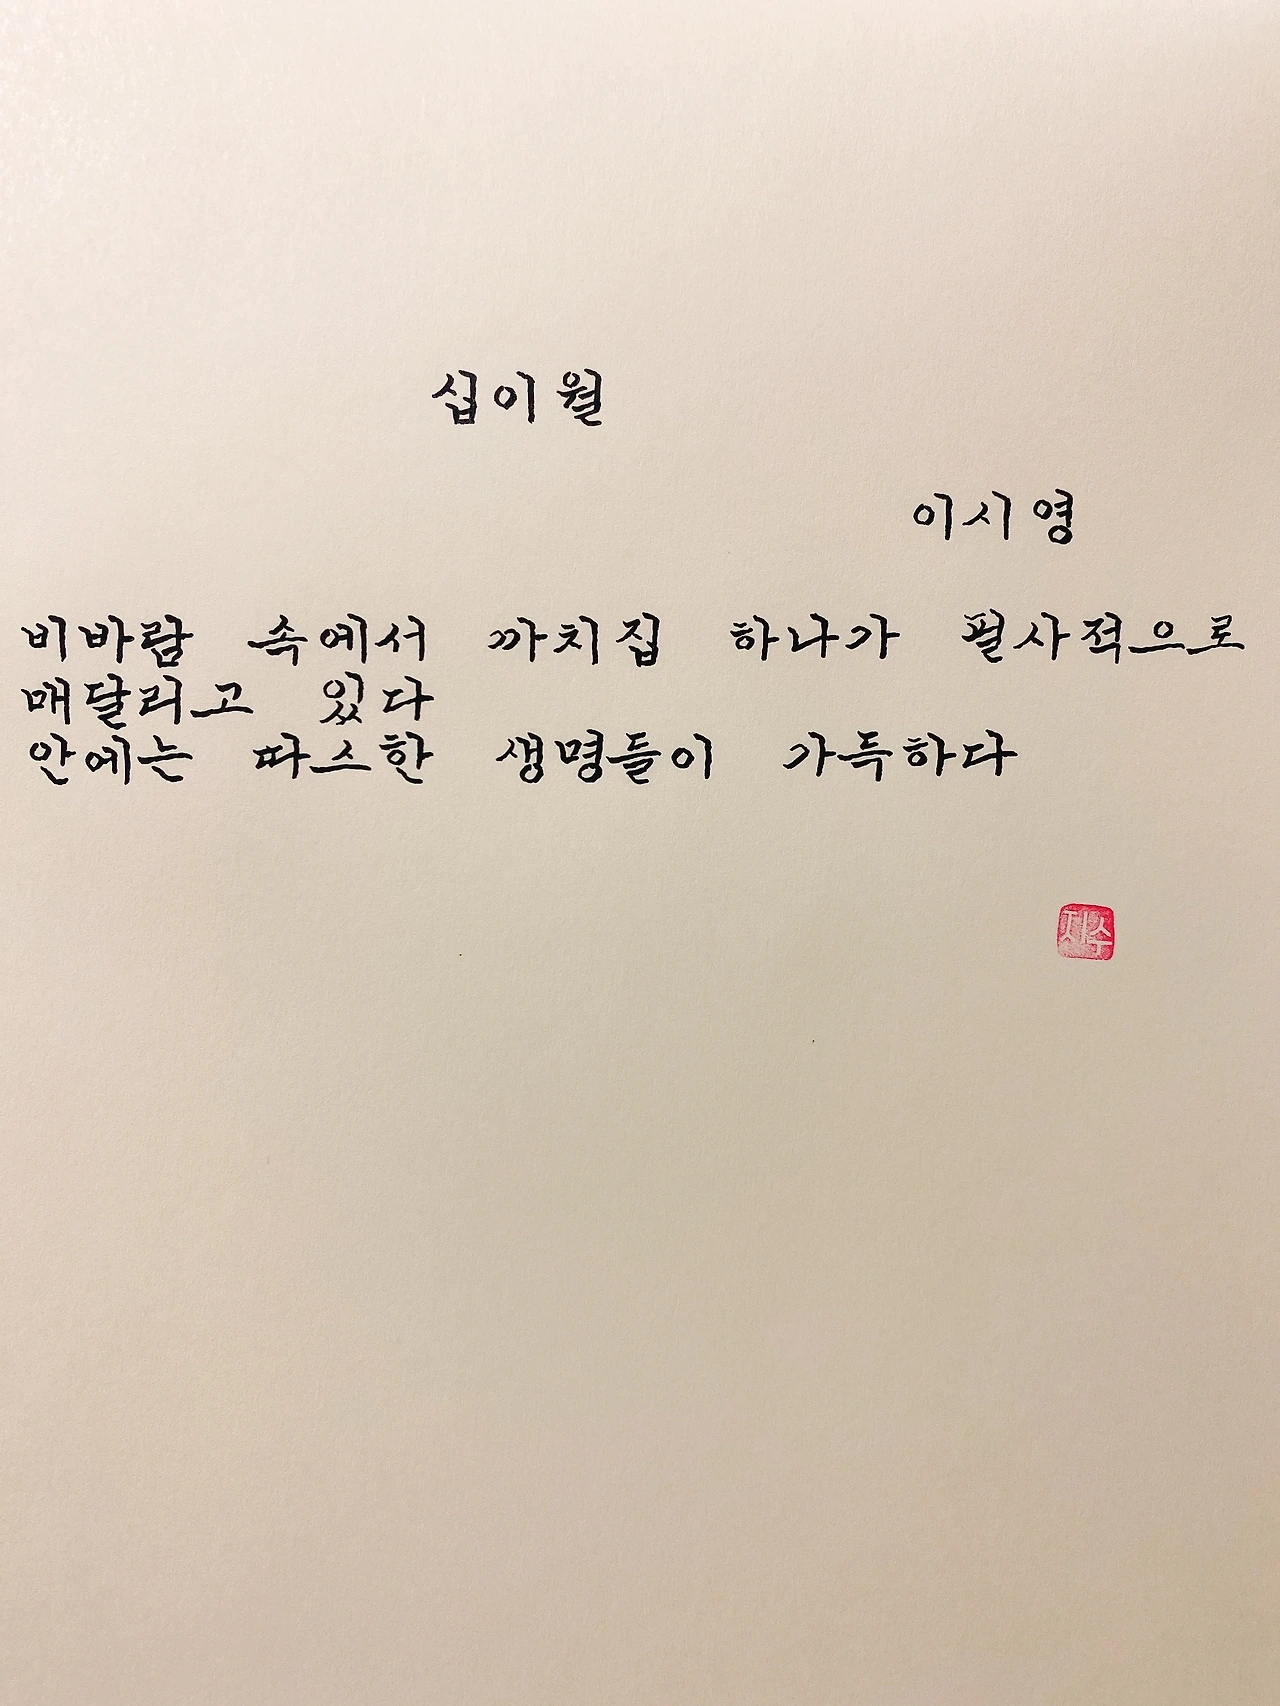 십이월
이시영
비바람 속에서 까치집 하나가 필사적으로
매달리고 있다
안에는 따스한 생명들이 가득하다
지수